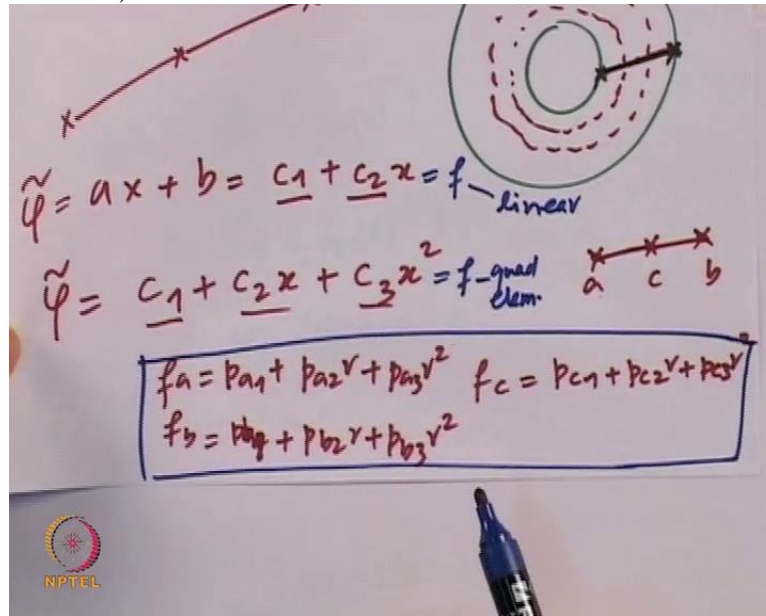 φ̃ = ax + b = c1 + c2x = f linear
φ̃ = c1 + c2x + c3x² = f-quad elem.
a c b
fa = pa1 + pa2r + pa3r² fc = pc1 + pc2r + pc3r²
fb = + pb2r + pb3r²
NPTEL